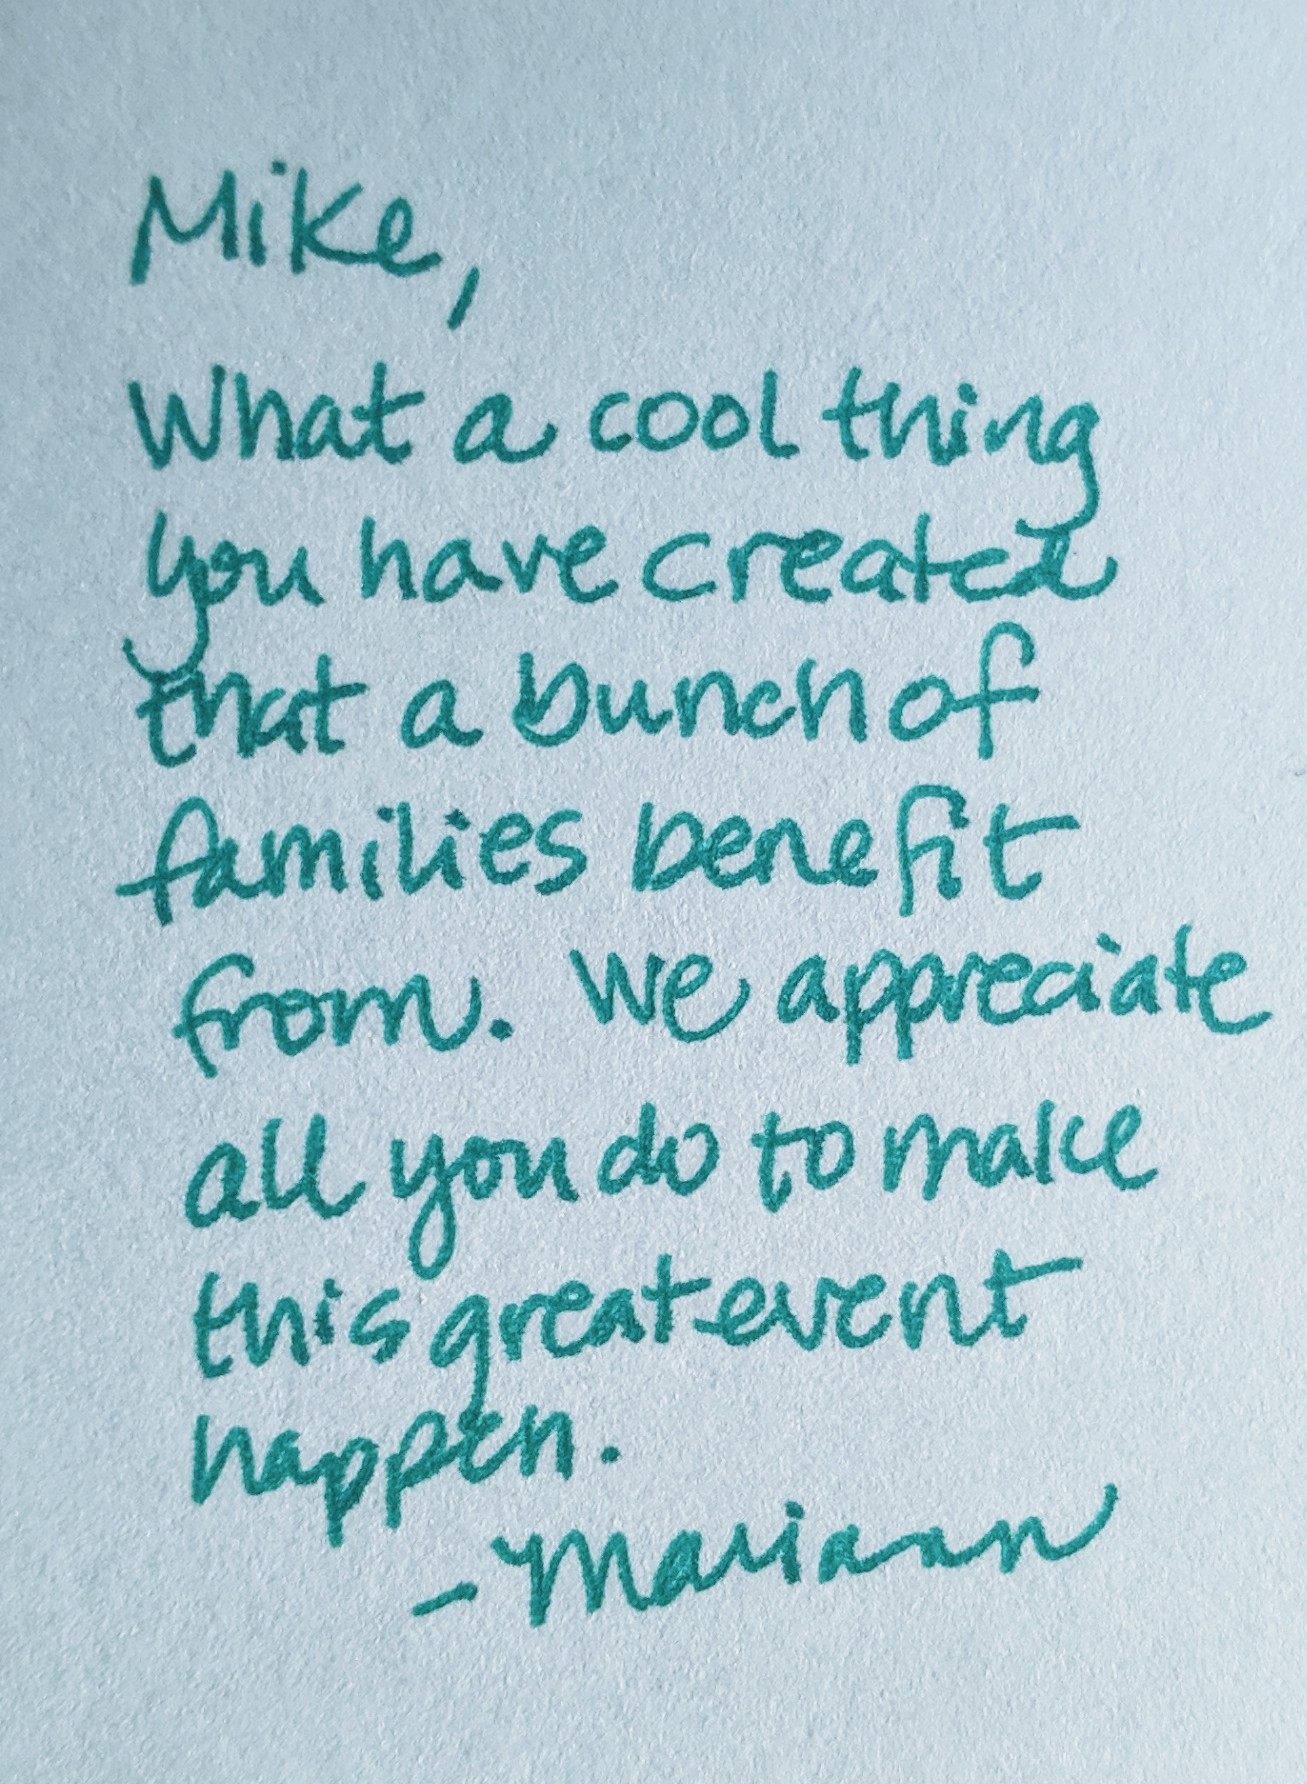 Mike,
What a cool thing
you have created
that a bunch of
families benefit
from. We appreciate
all you do to make
this great event
happen.
- Mariann